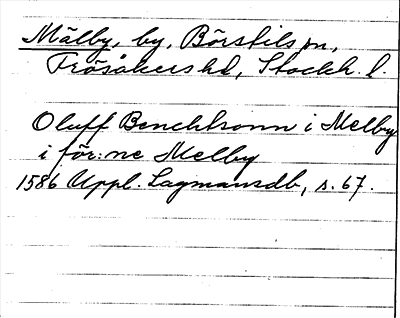 Mälby, by, Börstils sn,
Frösåkers hd, Stockh. l.
Oluff Benchtsonn i Melby
i för:ne Melby
1586 Uppl. Lagmansdb, s. 67.